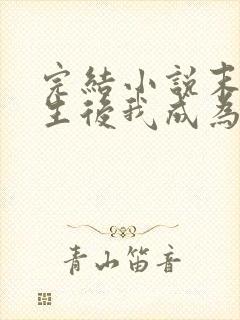 完結小說末
生後我成為
青山笛音